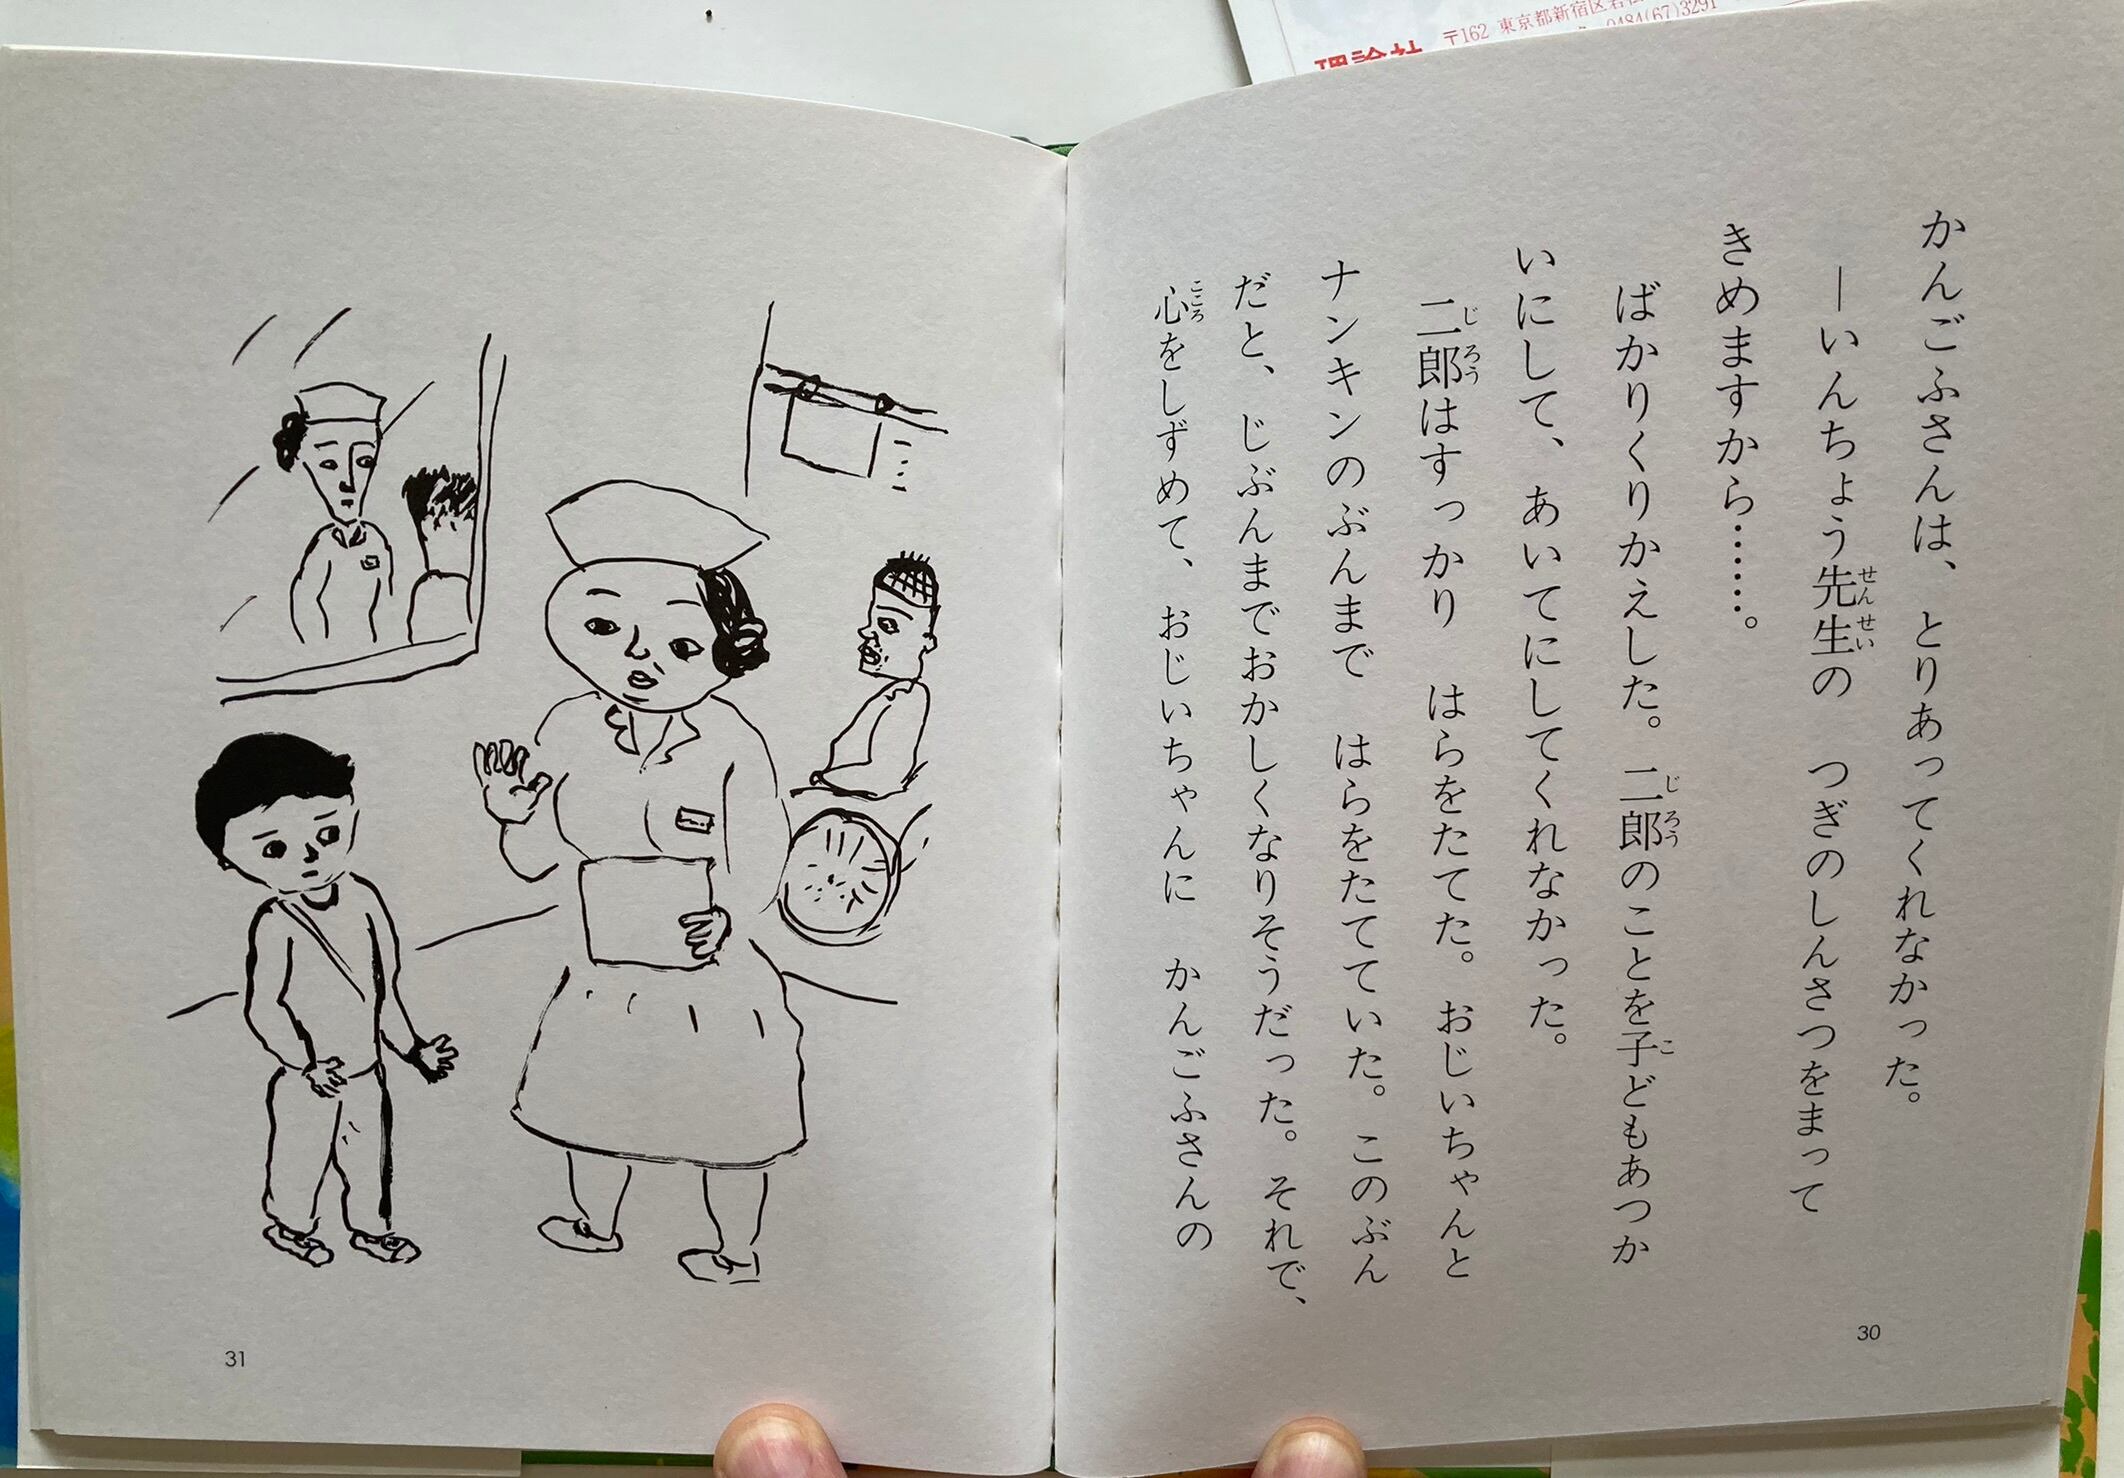 〒162 東京都新宿区若
0484(67)3291
理論社
かんごふさんは、とりあってくれなかった。
―いんちょう先生の　つぎのしんさつをまって
きめますから……。
ばかりくりかえした。二郎のことを子どもあつか
いにして、あいてにしてくれなかった。
二郎はすっかり　はらをたてた。おじいちゃんと
ナンキンのぶんまで　はらをたてていた。このぶん
だと、じぶんまでおかしくなりそうだった。それで、
心をしずめて、おじいちゃんに　かんごふさんの
30
31